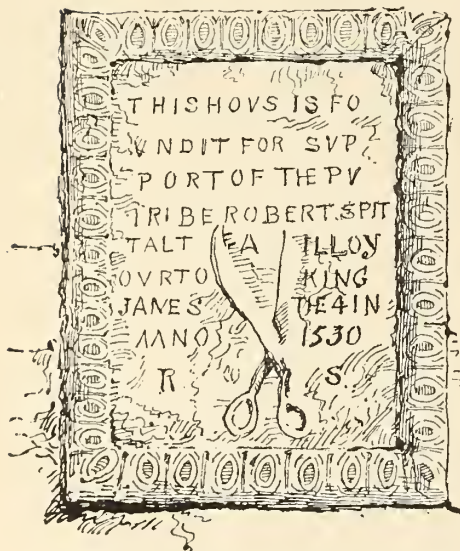 THISHOVS IS FO
VNDIT FOR SVP
PORT OF THE PV
IRIBE ROBERT. SPIT
TALT EA ILLOY
OVRTO KING
JANES THE 4 IN
ANNO 1530
R S.